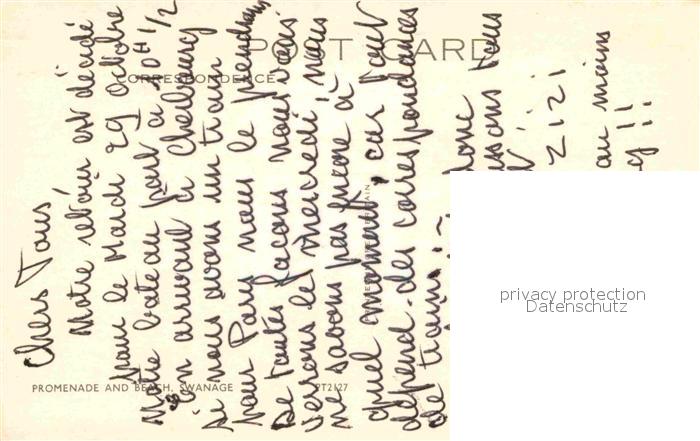 POST CARD
CORRESPONDENCE
Chers Tous
Notre retour est décidé
pour le Mardi 29 octobre
Notre bateau part à 10H1/2
en arrivant à Cherbourg
si nous avons un train
pour Paris nous le prendrons
De toutes façons nous vous
verrons le mercredi, nous
ne savons pas encore à
quel moment, car tout
dépend des correspondances
de train :-
donc
tous
ZIZI
au moins
!!
PROMENADE AND BEACH, SWANAGE
PT2127
privacy protection
Datenschutz